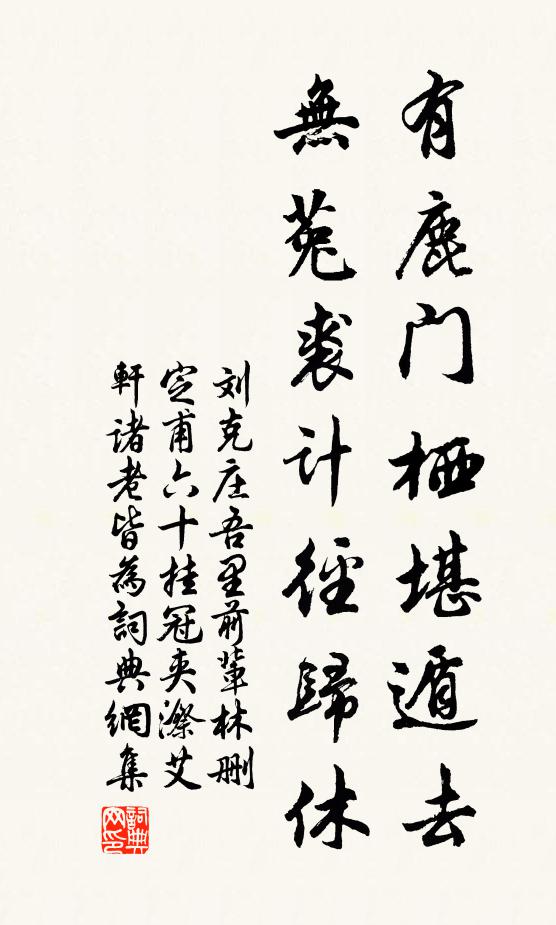 有鹿门栖堪遁去
無菟裘计径歸休
刘克庄吾里前輩林删
定甫六十挂冠夹漈艾
軒诸老皆為詞典網集
詞典
网印